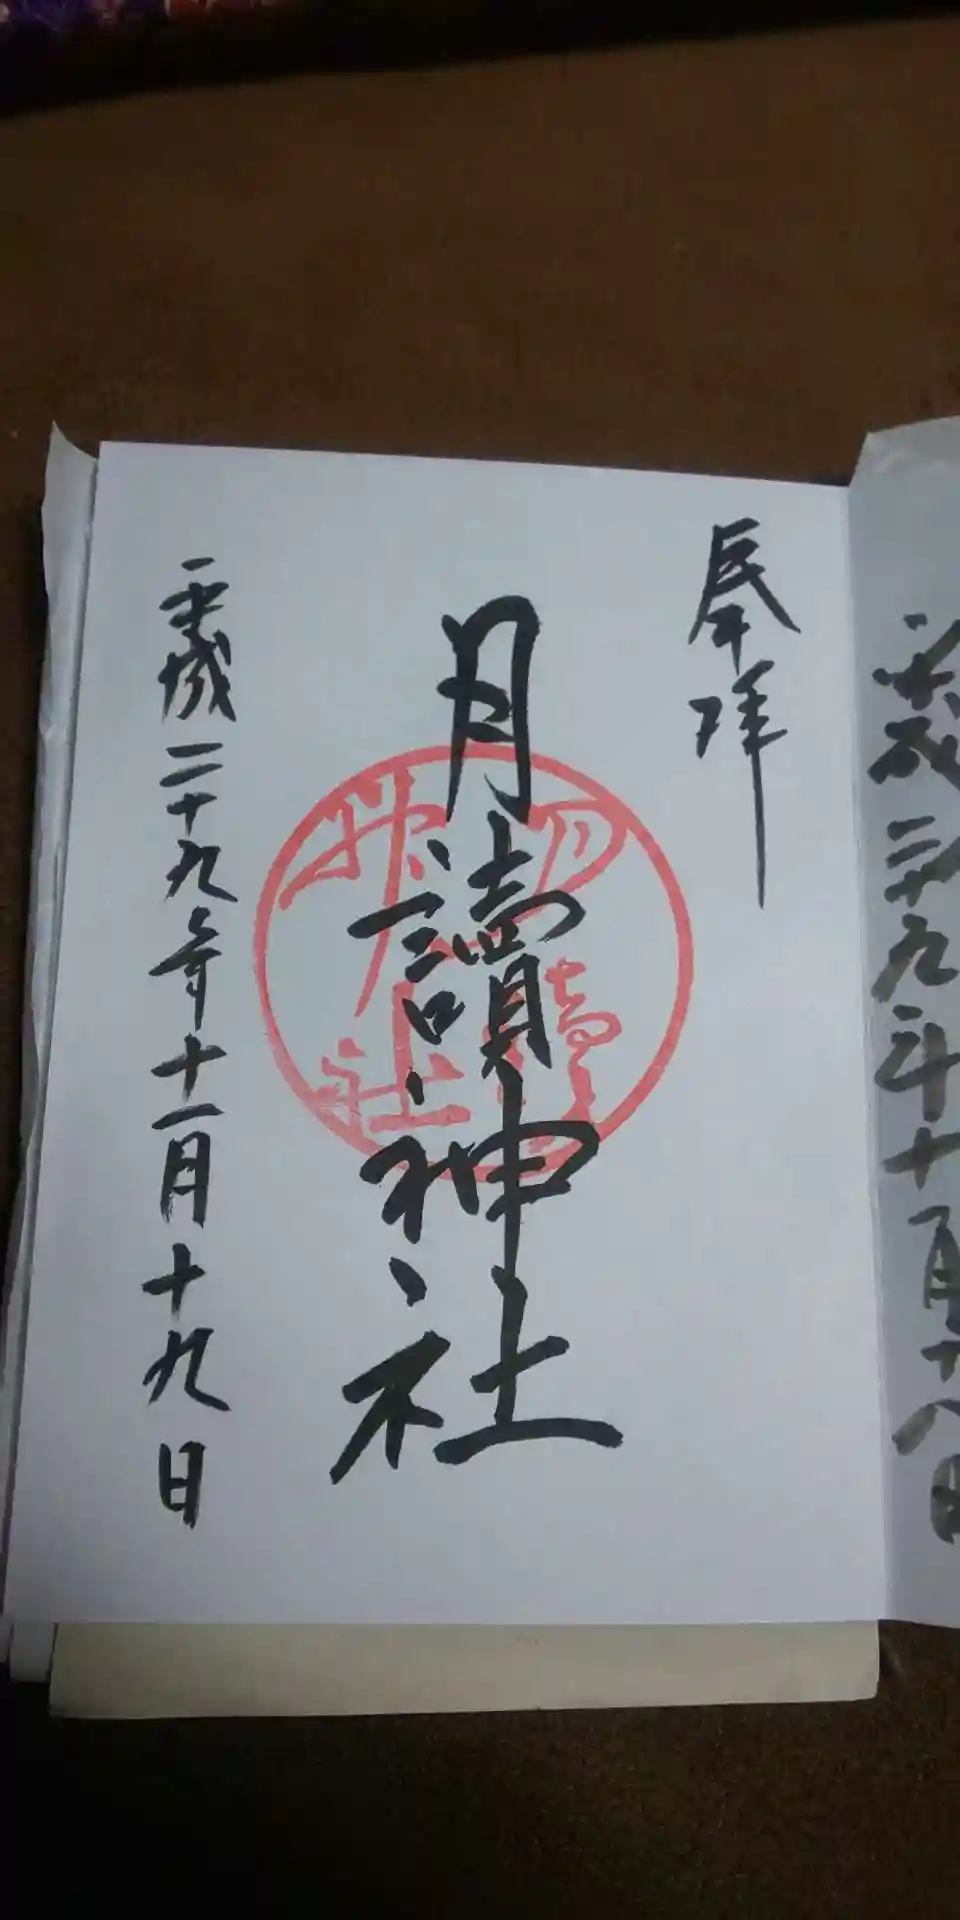 平成二十九年十一月十八日
奉拝
月讀神社
月讀神社
平成二十九年十一月十九日